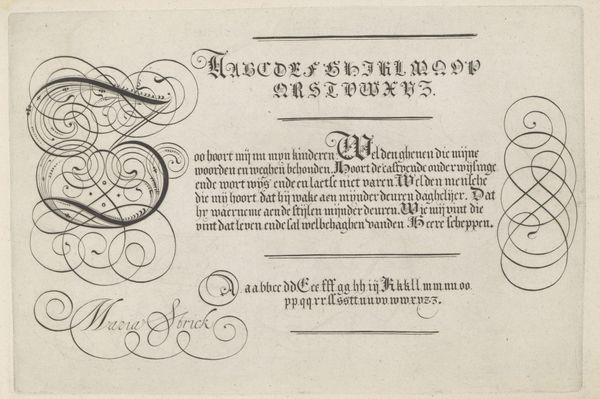 AABCDEFGHIJKLMNOP
QRSTVWXYZ.
Zoo hoort mij nu mijn kinderen Wel den ghenen die mijne
woorden en weghen behouden. Hoort de castyende onderwijsinge
ende wort wijs ende en laetse niet varen. Wel den mensche
die mij hoort dat hij wake aen mijnder deuren daghelijcx. Dat
hy waerneme aen de stijlen mijnder deuren. Wie mij vint die
vint dat leven ende sal welbehaghen vanden Heere scheppen.
A. a a bb cc dd E ee fff gg hh ij K kk ll mm nn oo
pp qq rr ss sstt uu vv ww xx y zz.
Maria Strick